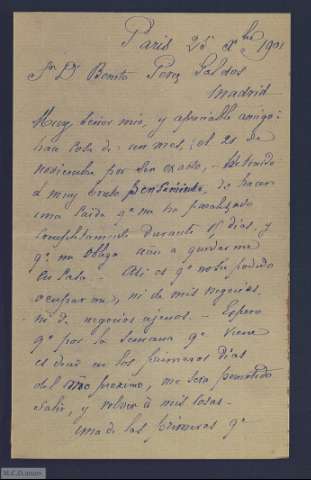 Paris 25 Xbre 1901
Sr Dn Benito Perez Galdos
Madrid
Muy señor mio, y apreciable amigo:
hace cosa de un mes, el 21 de
noviembre por ser exacto, - he tenido
el muy bruto pensamiento, de hacer
una caida qe me ha paralizado
completamente durante 15 dias, y
qe me obliga aun a quedarme
en casa. - Asi es qe no he podido
ocuparme, ni de mis negocios,
ni de negocios ajenos. - Espero
qe por la semana qe viene
es decir en los primeros dias
del año proximo, me sera permitido
salir, y volver à mis cosas. -
Una de las primeras qe